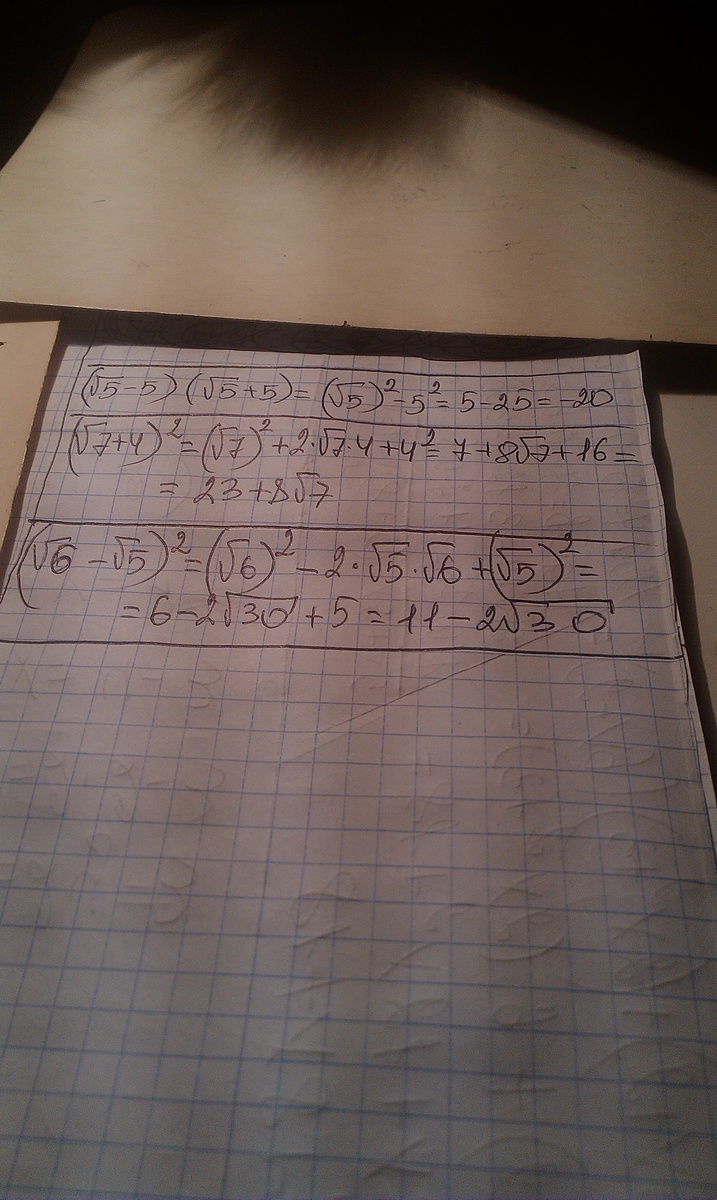 (√5-5) (√5+5) = (√5)² - 5² = 5-25 = -20
(√7+4)² = (√7)² + 2·√7·4 + 4² = 7 + 8√7 + 16 =
= 23 + 8√7
(√6 - √5)² = (√6)² - 2·√5·√6 + (√5)² =
= 6 - 2√30 + 5 = 11 - 2√30